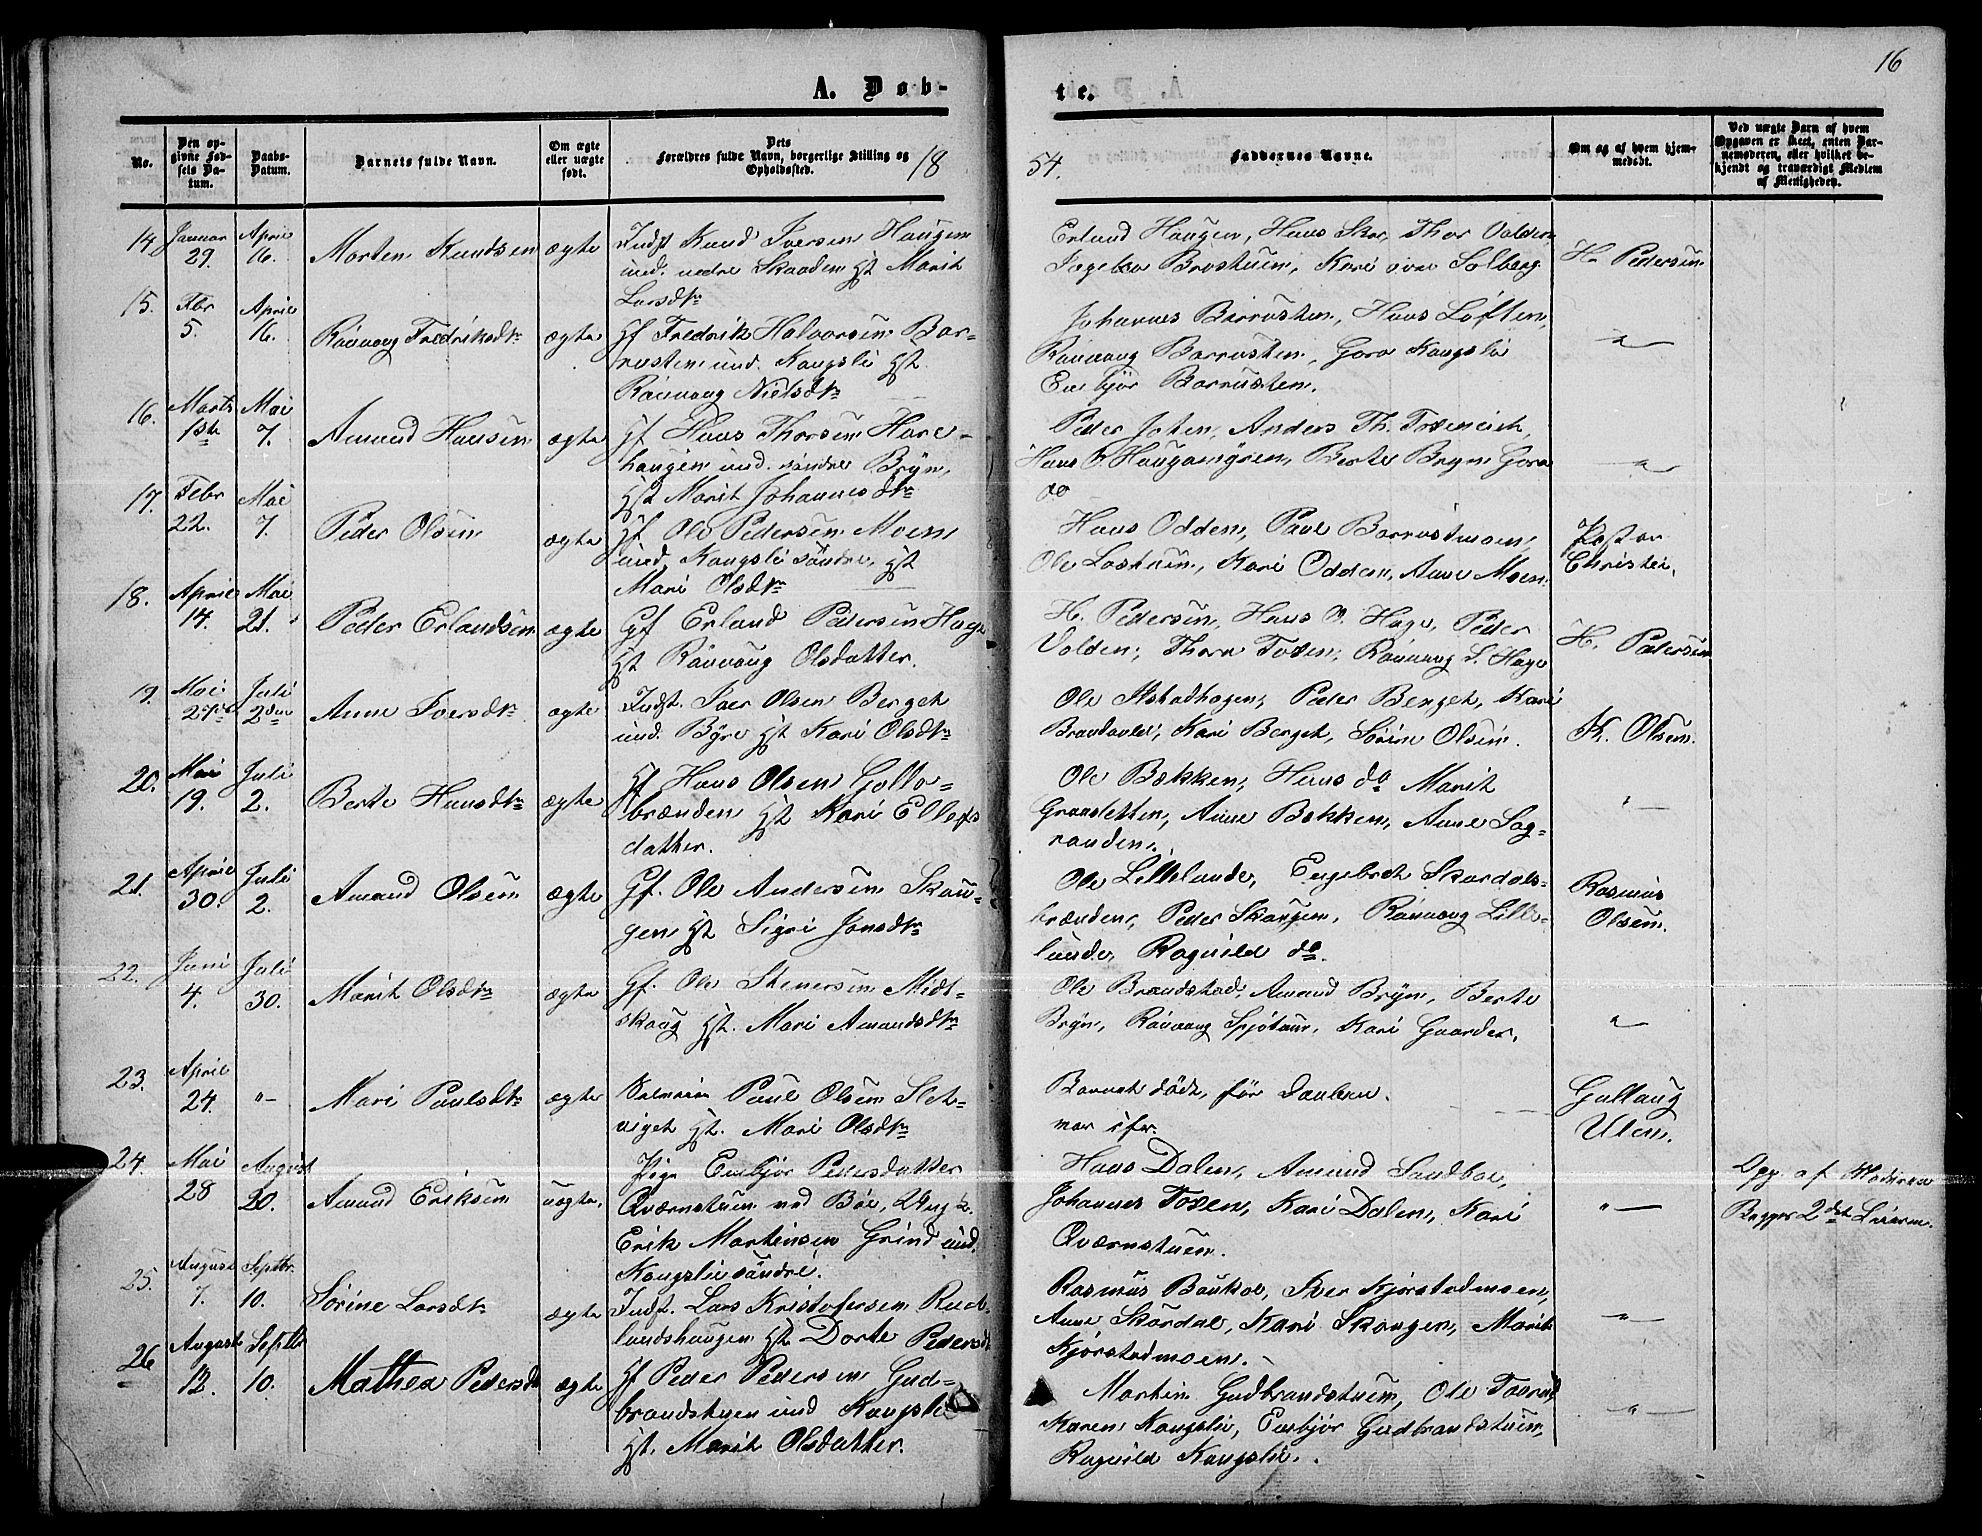 16
A. Døb-
te.
No.
Den op-
givne Fød-
sels Da-
tum.
Daabs-
Datum.
Barnets fulde Navn.
Om ægte
eller uægte
født.
Dets
Forældres fulde Navn, borgerlige Stilling og
Opholdssted.
18
54.
Faddernes Navne.
Om og af hvem hjem-
medøbt.
Ved uægte Barn af hvem
Opgaven er skeet, enten Bar-
nemoderen, eller hvilket be-
kjendt og troværdigt Medlem
af Menigheden.
14. Januar 29. April 16. Morten Knudsen ægte
Indst Knud Iversen Haugen
und. nedre Skaaden Hst Marit
Larsdtr
Erland Haugen, Hans Skar, Thor Volden
Ingebor Brostuen, Kari øvre Solberg.
H. Pedersen
15. Febr 5. April 16. Rønnoug Fredriksdtr ægte
Hf Fredrik Halvorsen Bør-
rusten und. Kongsli Hst.
Rønnoug Nielsdtr
Johannes Børrusten, Hans Løften,
Rønnoug Børrusten, Goro Kongsli
Embjør Børrusten.
"
16. Marts 1ste Mai 7. Amund Hansen ægte
Hf Hans Thorsen Hare-
haugen und. søndre Bryn,
Hst Marit Johannesdtr
Peder Johen, Anders Th. Toxeneik,
Hans O. Haugamyren, Berte Bryn Goro
do
"
17. Febr 22. Mai 7. Peder Olsen ægte
Hf Ole Pedersen Moen
und. Kongsli søndre, Hst
Mari Olsdtr
Hans Odden, Paul Børrustmoen,
Ole Loestuen, Kari Odden, Anne Moen.
Pastor
Christie.
18. April 14. Mai 21. Peder Erlandsen ægte
Gf Erland Pedersen Hage
Hst Rønnoug Olsdatter.
H. Pedersen, Hans O. Hage, Peder
Volden, Thora Toxen, Rønnoug S. Hage
H. Pedersen
19. Mai 27de Juli 2den Anne Iversdtr ægte
Indst. Iver Olsen Berget
und. Byre Hst Kari Olsdtr
Ole Ilstadhagen, Peder Berget, Kari
Brandvold, Kari Berget, Sørine Olsen.
K. Olsen.
20. Mai 19. Juli 2. Berte Hansdtr ægte
Hf Hans Olsen Gollo-
brænden Hst Kari Ellefs
datter.
Ole Bækken, Hans do Marit
Graasletten, Anne Bekken, Anne Sag-
randen.
"
21. April 30. Juli 2. Amund Olsen ægte
Gf. Ole Andersen Skou-
gen Hst Sigri Jonsdtr
Ole Lillelunde, Engebret Skordals-
brænden, Peder Skougen, Rønnoug Lille-
lunde, Ragnild do.
Rasmus
Olsen.
22. Juni 4. Juli 30. Marit Olsdtr ægte
Gf. Ole Stenersen Midt-
skoug Hst. Mari Amundsdtr
Ole Brandstad, Amund Bryn, Berte
Bryn, Rønnoug Spjotuen, Kari Gaarder.
"
23. April 24. "- Mari Paulsdtr ægte
Paul Olsen Slet-
viget Hst. Mari Olsdtr
Barnet døde, før Daaben
var
Gullaug
Ulen.
24. Mai 28 August 20. Amund Eriksen uægte.
Pige Embjør Pedersdatter
Qværnstuen und Bøe, Ung k.
Erik Martinsen Grind und.
Kongslie søndre.
Hans Dalen, Amund Sandboe,
Johannes Toxen, Kari Dalen, Kari
Qværnstuen.
"
Opg. af Moderen
Begges 2det Leierm.
25. August 7. Septbr. 10. Sørine Larsdtr ægte
Indst. Lars Kristofersen Rud-
landshaugen Hst Dorte Pedersdt
Rasmus Baukol, Iver Kjørstadmoen,
Anne Skordal, Kari Skougen, Marit
Kjørstadmoen.
"
26 August 12. Septbr 10. Mathea Pedersdt ægte
Hf Peder Pedersen Gud-
brandstuen und Kongsli
Hst. Marit Olsdatter.
Martin Gudbrandstuen, Ole Toxrud,
Karen Kongsli, Embjør Gudbrandstuen,
Ragnild Kongsli.
"